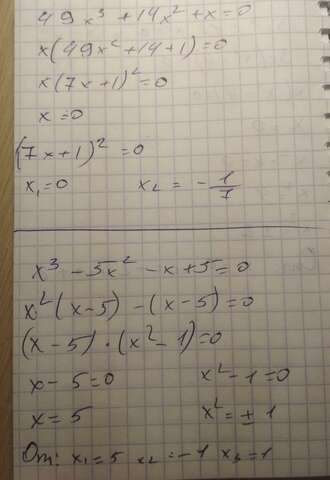 49x³ + 14x² + x = 0
x(49x² + 14 + 1) = 0
x(7x + 1)² = 0
x = 0
(7x + 1)² = 0
x₁ = 0 x₂ = - 1/7
x³ - 5x² - x + 5 = 0
x²(x - 5) - (x - 5) = 0
(x - 5) · (x² - 1) = 0
x - 5 = 0 x² - 1 = 0
x = 5 x² = ± 1
От: x₁ = 5 x₂ = -1 x₃ = 1